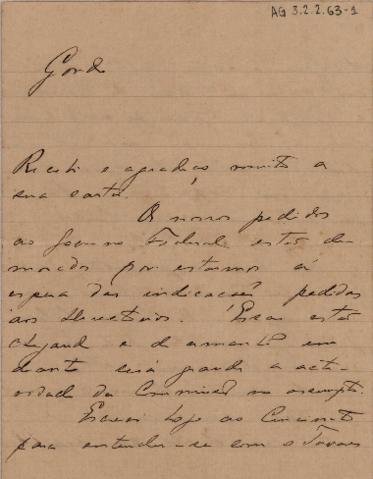 AG 3.2.2.63-1
Gordo
Recebi e agradeço muito a
sua carta.
Os nossos pedidos
ao Governo Federal estão de-
morados por estarmos á
espera das indicações pedidas
aos Directorios. Essas estão
chegando e de amanhã em
deante será grande a acti-
vidade da Commissão no assumpto.
Escrevi hoje ao Cincinato
para entender-se com o Tavares